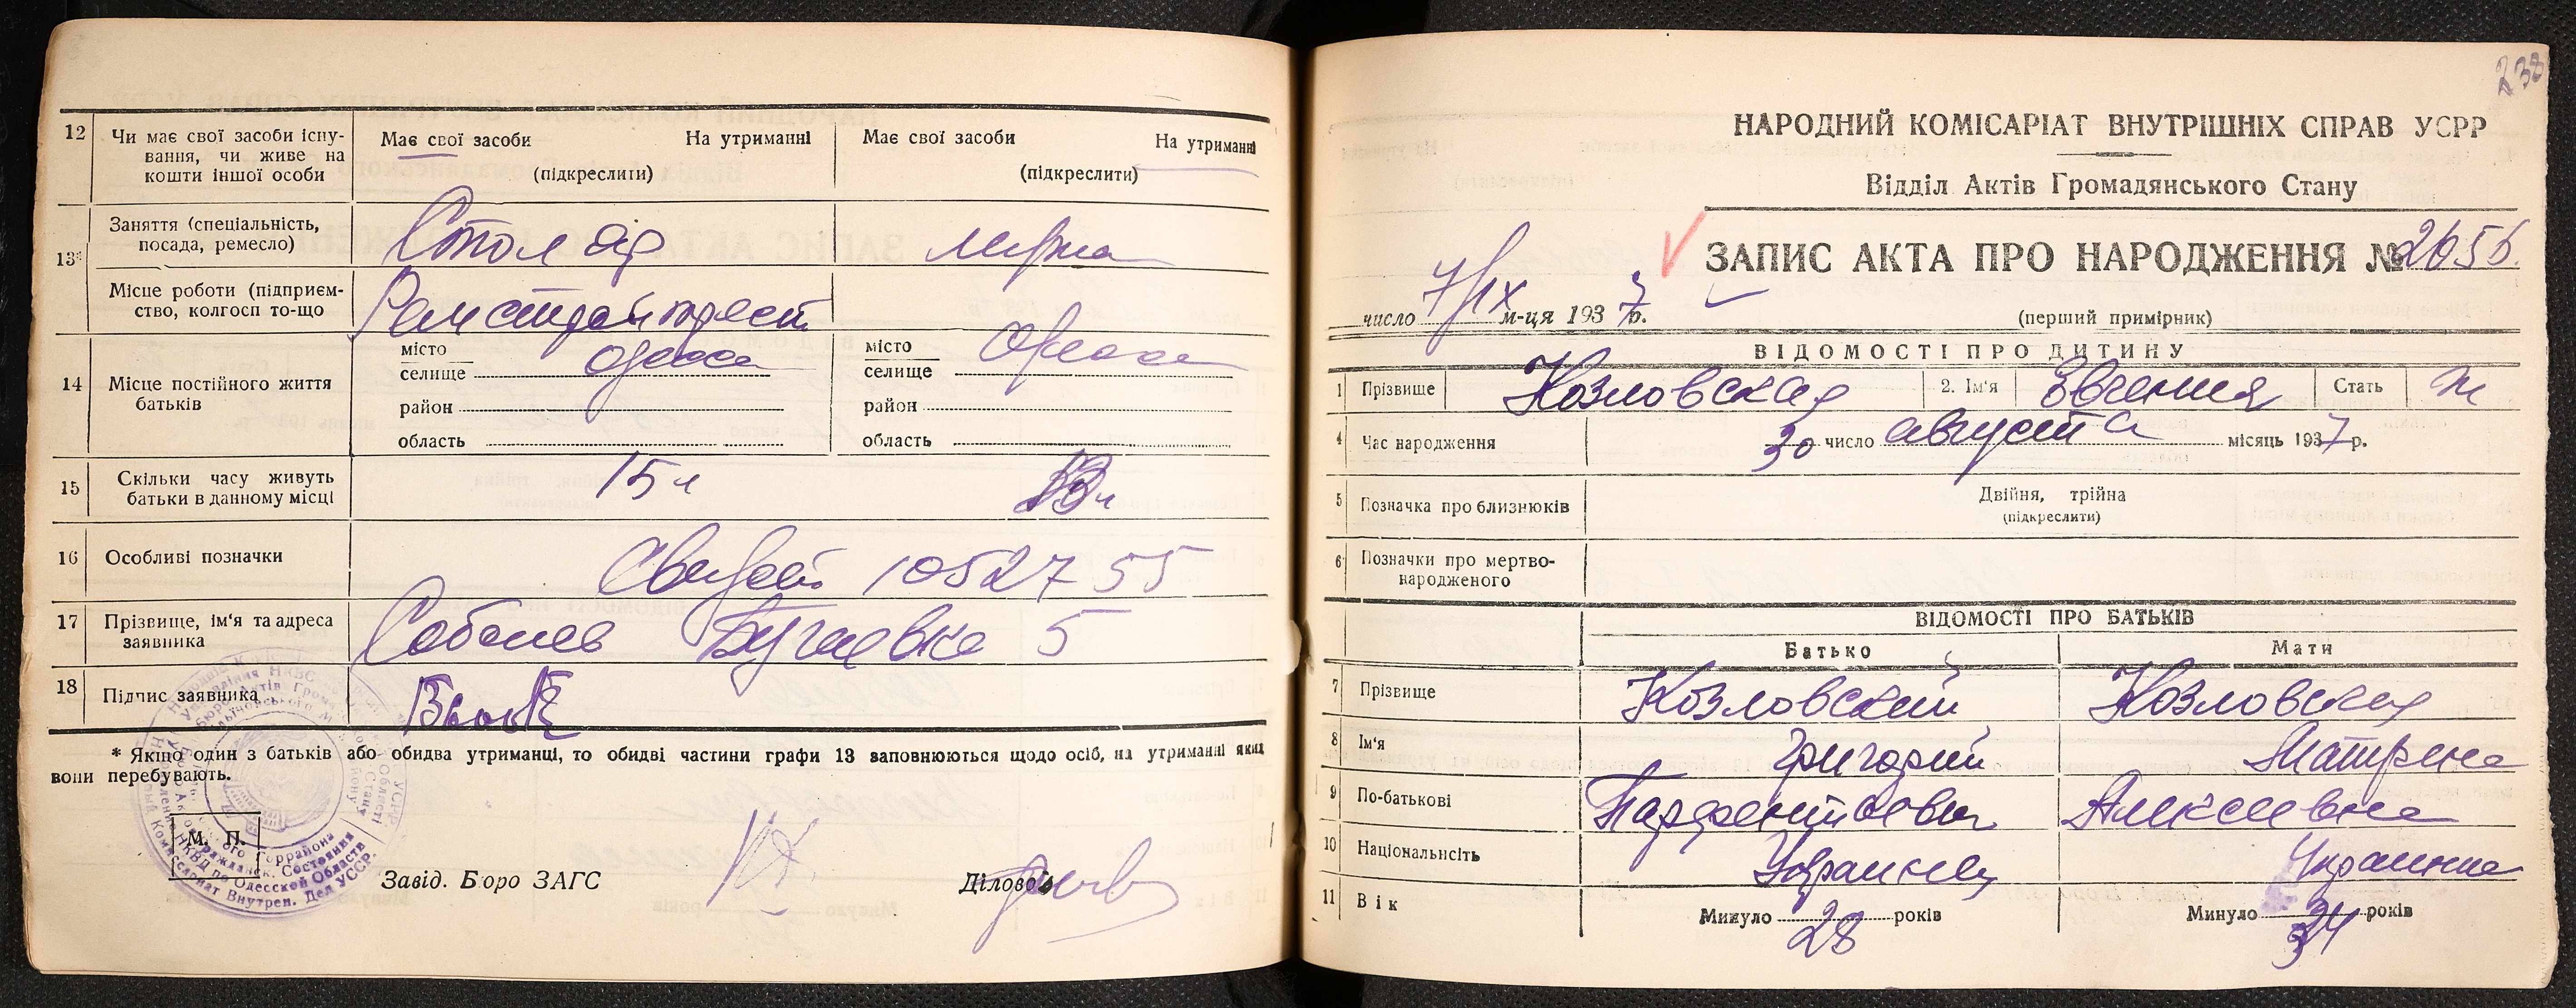 12 Чи має свої засоби існу-
вання, чи живе на
кошти іншої особи
Має свої засоби На утриманні
(підкреслити)
Має свої засоби На утриманні
(підкреслити)
13* Заняття (спеціальність,
посада, ремесло)
Столяр
мужа
Місце роботи (підприєм-
ство, колгосп то-що
Ремстройтрест
14 Місце постійного життя
батьків
місто
селище Одесса
район
область
місто
селище Одесса
район
область
15 Скільки часу живуть
батьки в данному місці
15 л
16 Особливі позначки
1052755
17 Прізвище, ім'я та адреса
заявника
Бугаевка 5
18 Підпис заявника
* Якщо один з батьків або обидва утриманці, то обидві частини графи 13 заповнюються щодо осіб, на утриманні яких
вони перебувають.
М. П.
Завід. Бюро ЗАГС
Діловод
238
НАРОДНИЙ КОМІСАРІАТ ВНУТРІШНІХ СПРАВ УСРР
Відділ Актів Громадянського Стану
ЗАПИС АКТА ПРО НАРОДЖЕННЯ № 2656
число 7/IX м-ця 1937 р.
(перший примірник)
ВІДОМОСТІ ПРО ДИТИНУ
1 Прізвище Козловская 2. Ім'я Евгения Стать ж
4 Час народження 30 число августа місяць 1937 р.
5 Позначка про близнюків
Двійня, трійна
(підкреслити)
6 Позначки про мертво-
народженого
ВІДОМОСТІ ПРО БАТЬКІВ
Батько Мати
7 Прізвище Козловский Козловская
8 Ім'я Григорий Матрена
9 По-батькові Парфентьевич Алексеевна
10 Національність Украинец Украинка
11 Вік Минуло 28 років Минуло 34 років